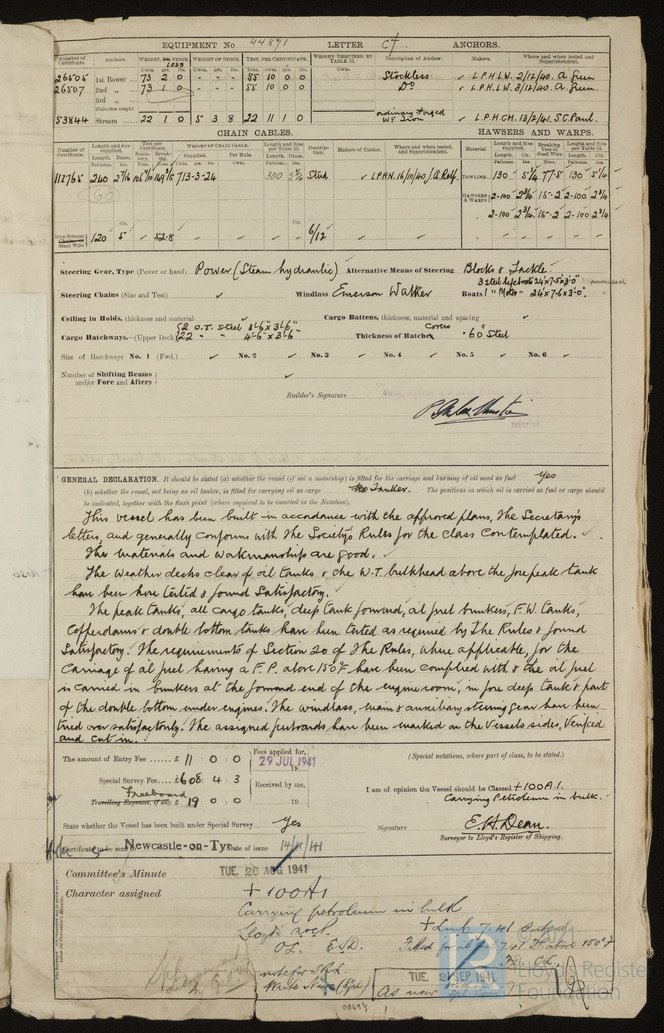 EQUIPMENT No 44891 LETTER C† ANCHORS.
Number of Certificate. Anchors. WEIGHT, EX STOCK. WEIGHT OF STOCK. TEST, PER CERTIFICATE. WEIGHT REQUIRED BY TABLE 53. Description of Anchor. Makers. Where and when tested and Superintendent.
26505 1st Bower 73 2 0 - - - 55 10 0 0 Stockless ✓ L.P.H.LW. 2/12/40. A. Green
26507 2nd „ 73 1 0 - - - 55 10 0 0 Do ✓ L.P.H.LW. 3/12/40. A. Green.
3rd „
Collective weight.
53844 Stream 22 1 0 5 3 8 22 11 1 0 ordinary Forged Wt Iron ✓ L.P.H.CH. 13/2/41. S.C. Paul.
CHAIN CABLES. HAWSERS AND WARPS.
Number of Certificate. Length and size supplied. Test per Certificate. WEIGHT OF CHAIN CABLE. Length and size per Table 53. Description. Makers of Cables. Where and when tested, and Superintendent. Material. Length and Size supplied. Breaking Test of Steel Wire. Length and Size per Table 53.
112765 240 2 7/16 713-3-24 300 Steel ✓ L.P.H.N. 16/10/40 TOWLINE 130 5 1/4 77.5 130 5 1/4
HAWSERS & WARPS 2-100 2 3/4 15.2 2-100 2 3/4
2-100 2 3/4 15.2 2-100 2 3/4
Steel Wire 120 5 ✓ 52.8 6/12
Steering Gear, Type (Power or hand) Power (Steam hydraulic) Alternative Means of Steering Blocks & Tackle.
Steering Chains (Size and Test) ✓ Windlass Emerson Walker Boats 3 steel lifeboats 24'x7.5'x3'0"
1 "Motor" 24'x7.6'x3'0".
Ceiling in Holds, thickness and material ✓ Cargo Battens, thickness, material and spacing ✓
Cargo Hatchways.—(Upper Deck) 2 O.T. Steel 3'6" x 3'6"
22 „ „ 4'6" x 3'6" Thickness of Hatches Covers ·60" Steel
Size of Hatchways No. 1 (Fwd.) ✓ No. 2 ✓ No. 3 ✓ No. 4 ✓ No. 5 ✓ No. 6 ✓
Number of Shifting Beams and/or Fore and Afters ✓
Builder's Signature
GENERAL DECLARATION. It should be stated (a) whether the vessel (if not a motorship) is fitted for the carriage and burning of oil used as fuel Yes
(b) whether the vessel, not being an oil tanker, is fitted for carrying oil as cargo Tanker. The positions in which oil is carried as fuel or cargo should
be indicated, together with the flash point (where required to be inserted in the Notation).
This vessel has been built in accordance with the approved plans, the Secretary's
letters, and generally conforms with the Society's Rules for the class contemplated. ✓
The materials and workmanship are good. ✓
The weather decks clear of oil tanks & the W.T. bulkhead above the fore peak tank
have been hose tested & found satisfactory.
The peak tanks, all cargo tanks, deep tank forward, oil fuel bunkers, F.W. tanks,
cofferdams & double bottom tanks have been tested as required by the Rules & found
satisfactory. The requirements of Section 20 of the Rules, where applicable, for the
carriage of oil fuel having a F.P. above 150°F. have been complied with & the oil fuel
is carried in bunkers at the forward end of the engine room, in fore deep tank & part
of the double bottom under engines. The windlass, main & auxiliary steering gear have been
tried over satisfactorily. The assigned freeboards have been marked on the vessels sides, verified
and cut in.
The amount of Entry Fee £ 11 : 0 : 0 Fees applied for, 29 JUL 1941 (Special notations, where part of class, to be stated.)
Special Survey Fee £608 : 4 : 3 Received by me, I am of opinion the Vessel should be Classed +100A.1.
Freeboard Carrying Petroleum in bulk.
Travelling Expenses, if any £ 19 : 0 : 0 19
State whether the Vessel has been built under Special Survey Yes Signature E.H. Dean.
Surveyor to Lloyd's Register of Shipping.
Certificate to be sent to Newcastle-on-Tyne Date of issue 14/11/41
Committee's Minute TUE. 26 AUG 1941
Character assigned +100A1
Carrying petroleum in bulk
Lloyds a&cp. +LMC 7.41 Subject
OL. ESD. Fitted for oil fuel 7.41 F.P. above 150°F
CL.
note for S.R.L.
TUE. 2 SEP 1941
As now
Lloyd's Register
Foundation